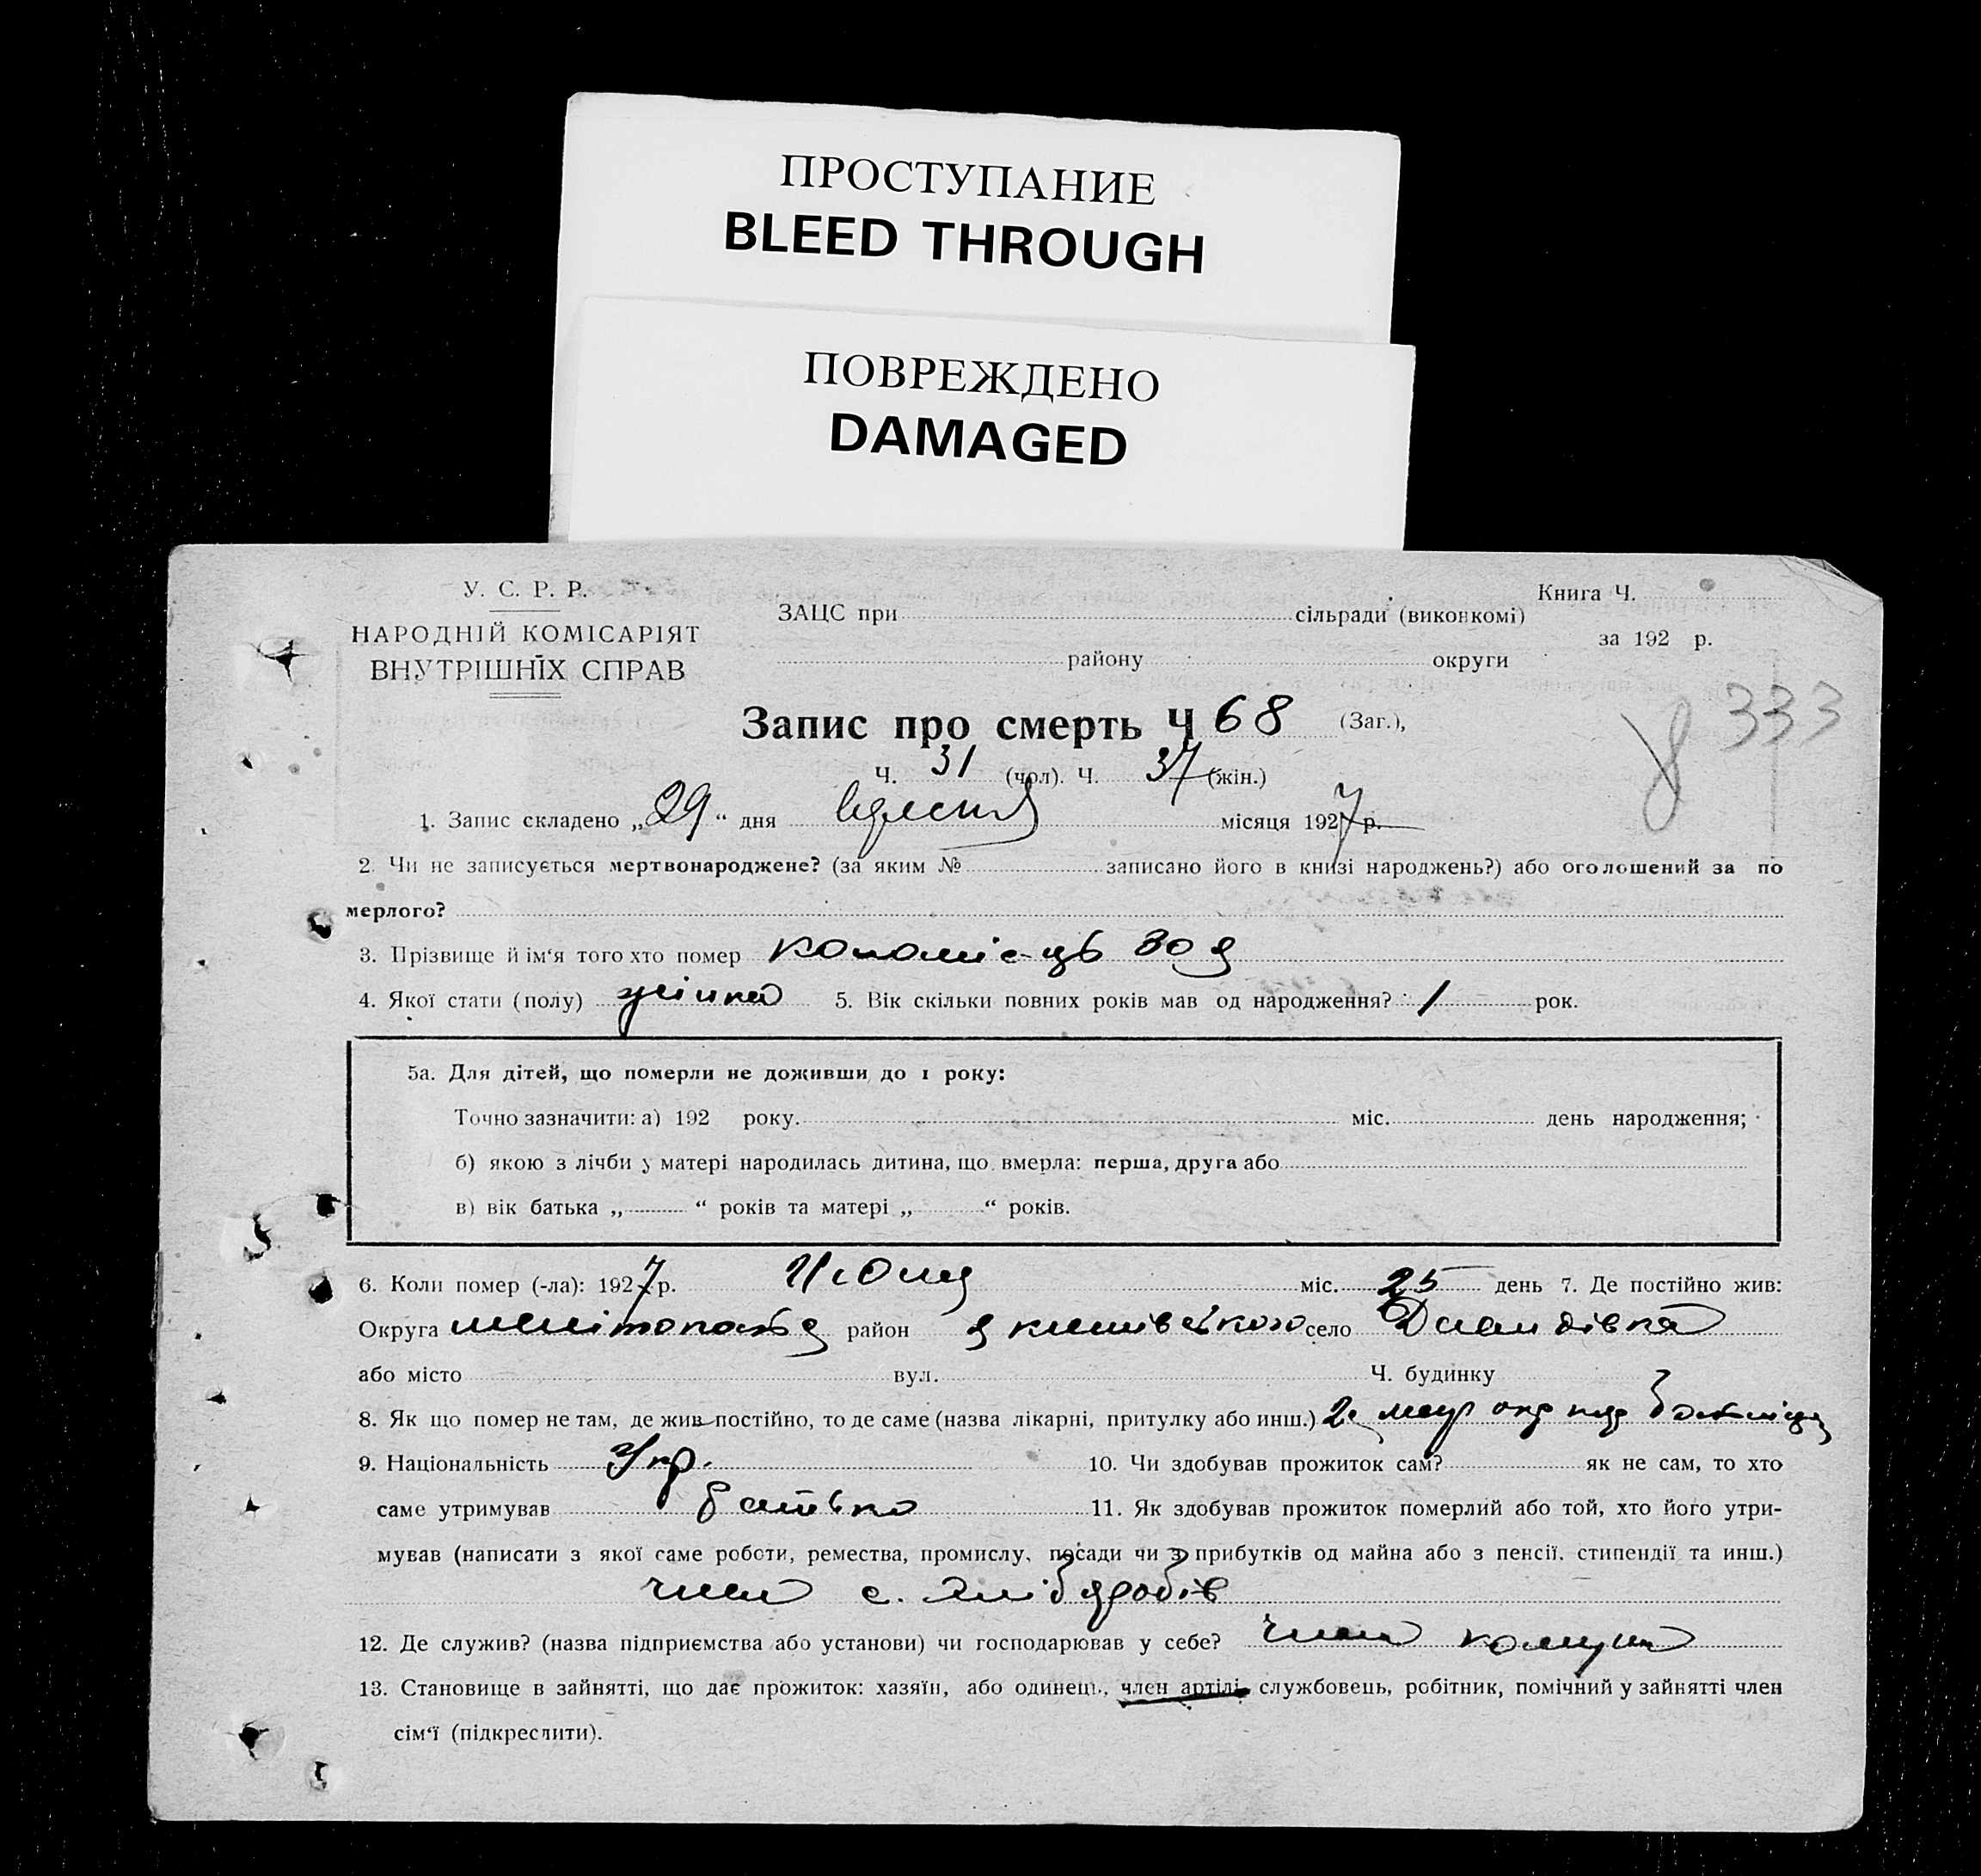 ПРОСТУПАНИЕ
BLEED THROUGH
ПОВРЕЖДЕНО
DAMAGED
У. С. Р. Р.
НАРОДНІЙ КОМІСАРІЯТ
ВНУТРІШНІХ СПРАВ
ЗАЦС при сільради (виконкомі)
району округи
Книга Ч.
за 192 р.
333
Запис про смерть Ч 68 (Заг.),
Ч. 31 (чол). Ч. 37 (жін.)
1. Запис складено „29“ дня місяця 1927 р.
2. Чи не записується мертвонароджене? (за яким № записано його в книзі народжень?) або оголошений за по
мерлого?
3. Прізвище й ім‘я того хто помер Коломієць Зоя
4. Якої стати (полу) жінка 5. Вік скільки повних років мав од народження? 1 рок.
5а. Для дітей, що померли не доживши до 1 року:
Точно зазначити: а) 192 року. міс. день народження;
б) якою з лічби у матері народилась дитина, що вмерла: перша, друга або
в) вік батька „ “ років та матері „ “ років.
6. Коли помер (-ла): 1927 р. міс. 25 день 7. Де постійно жив:
Округа район село
або місто вул. Ч. будинку
8. Як що помер не там, де жив постійно, то де саме (назва лікарні, притулку або инш.)
9. Національність Укр. 10. Чи здобував прожиток сам? як не сам, то хто
саме утримував батько 11. Як здобував прожиток померлий або той, хто його утри-
мував (написати з якої саме роботи, ремества, промислу, посади чи з прибутків од майна або з пенсії, стипендії та инш.)
член с.
12. Де служив? (назва підприємства або установи) чи господарював у себе? член комуни
13. Становище в зайнятті, що дає прожиток: хазяїн, або одинець, член артілі, службовець, робітник, помічний у зайнятті член
сім‘ї (підкреслити).